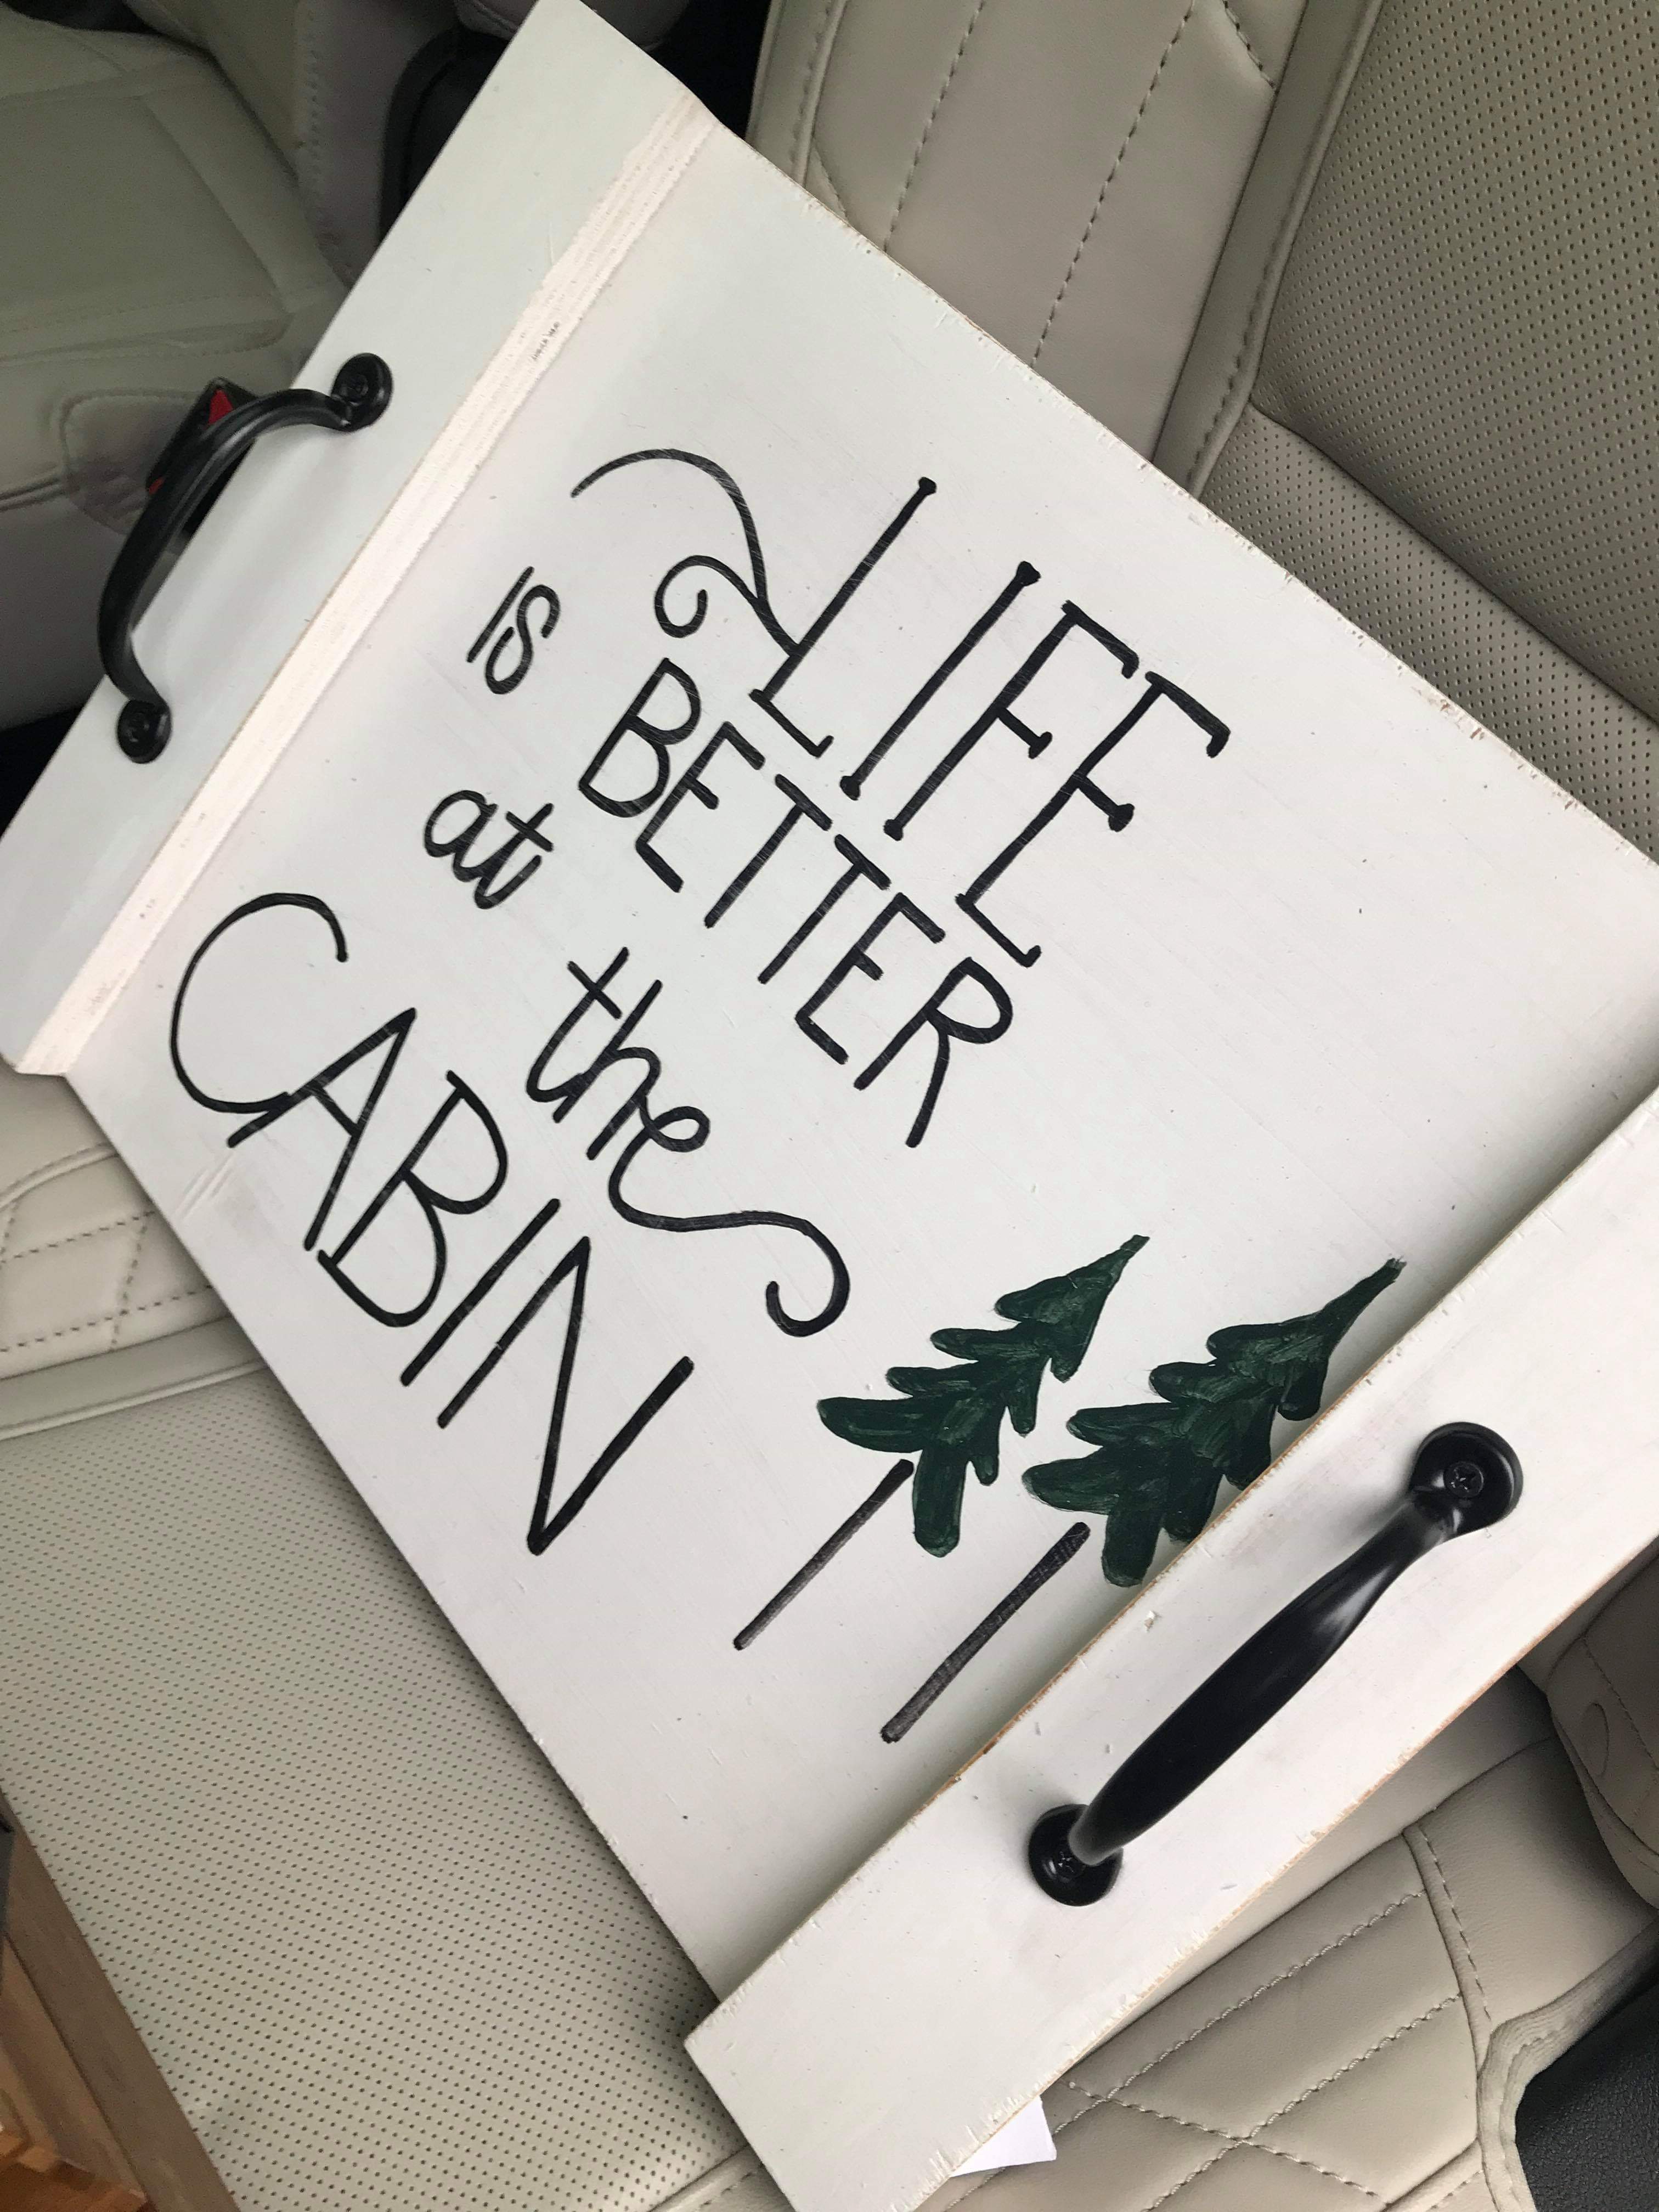 LIFE
is BETTER
at the
CABIN